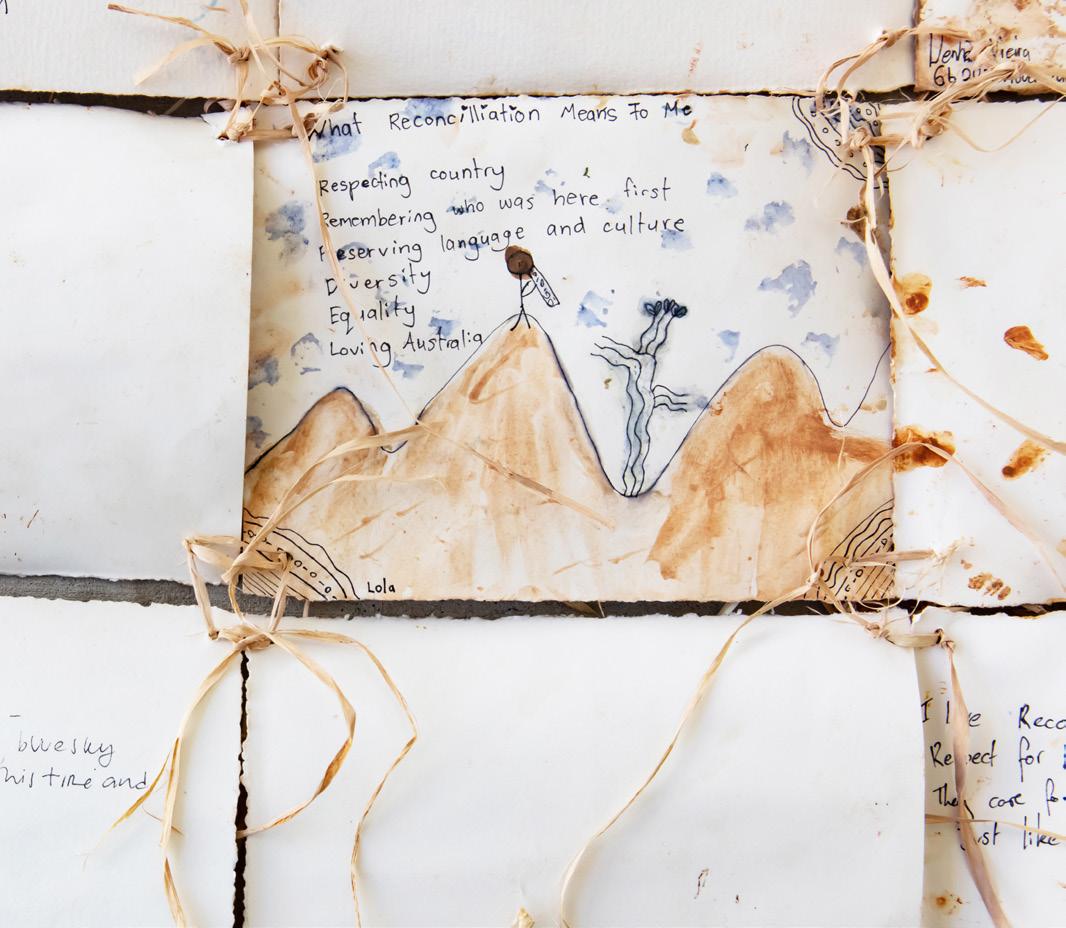 What Reconcilliation Means To Me
Respecting country
Remembering who was here first
Preserving language and culture
Diversity
Equality
Loving Australia
Lola
bluesky
this time and
I Reco
Respect for
They care
Just like
Vieira